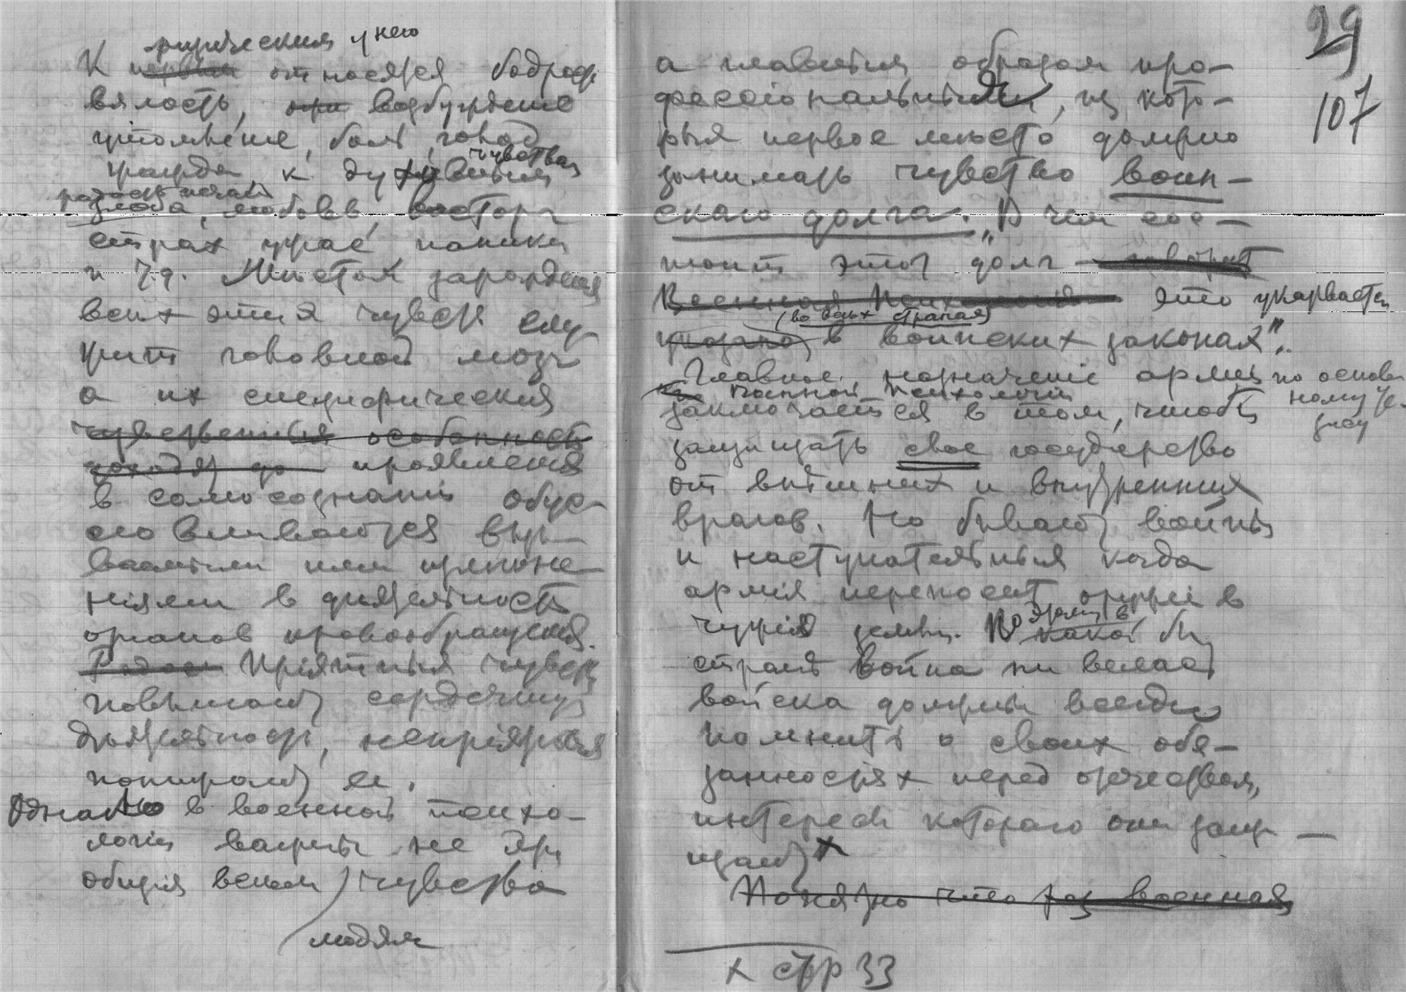 физическия у него
К первым относятся бодрость
вялость, возбуждение
утомление, боль, голод
жажда, к душевным чувствам
радость печаль
злоба, любовь, восторг
страх ужас паника
и т.д. Местом зарождения
всех этих чувств слу-
жит головной мозг
а их специфическия
чувственныя особенности
проявления
в самосознании обус-
ловливается
или
ниями в деятельности
органов кровообращения.
Приятныя чувства
повышают сердечную
деятельность, неприятныя
понижают ее.
Однако в военной психо-
логии важны не эти
общия всем чувства
людям
29
107
а главным образом про-
фессиональныя, из кото-
рых первое место должно
занимать чувство воин-
скаго долга. "В чем сос-
тоит этот долг говорит
Военная Психология это указывается
(во всех странах)
указано в воинских законах".
Главное назначение армии по основ-
ному за-
кону
военной психологии
заключается в том, чтобы
защищать свое государство
от внешних и внутренних
врагов. Но бывают войны
и наступательныя когда
армия переносит оружие в
чужия земли. Но в какой бы
стране война ни велась
войска должны всегда
помнить о своих обя-
занностях перед отечеством,
интересы котораго они защи-
щают x
Понятно что раз военная
x стр 33